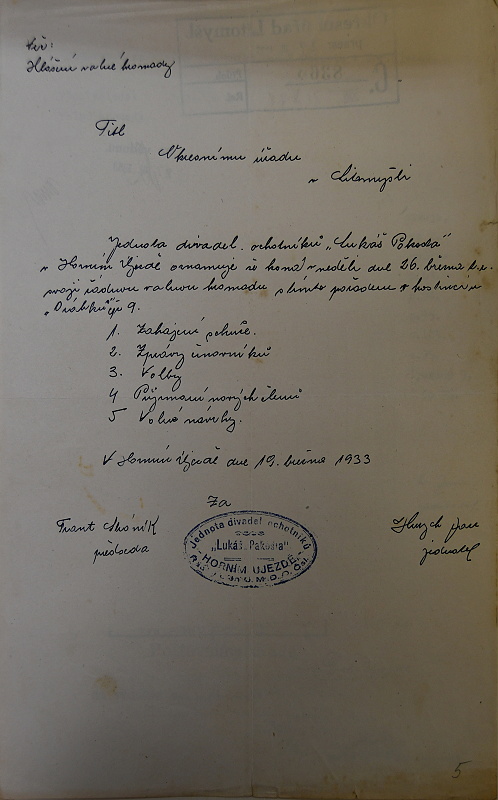 Věc:
Hlášení valné hromady
Titl
Okresnímu úřadu
v Litomyšli
Jednota divadel. ochotníků „Lukáš Pakosta"
v Horním Újezdě oznamuje že koná v neděli dne 26. března t.r.
svoji řádnou valnou hromadu s tímto pořadem v hostinci u
čp 9.
1. Zahájení schůze.
2. Zprávy činovníků
3. Volby
4 Přijímaní nových členů
5 Volné návrhy.
V Horním Újezdě dne 19. března 1933
Za
Frant
předseda
jednatel
Jednota divadel ochotníků
„Lukáš Pakosta"
HORNÍM ÚJEZDĚ.
5